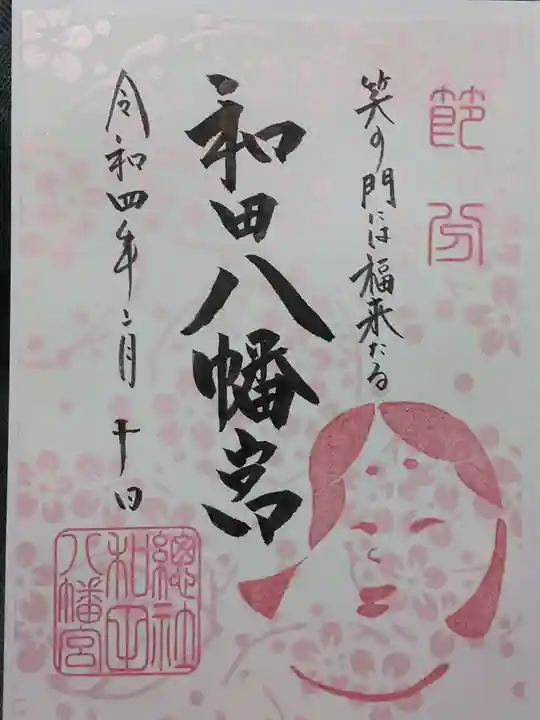 節分
笑う門には福来たる
和田八幡宮
令和四年二月十日
總社
和田
八幡宮